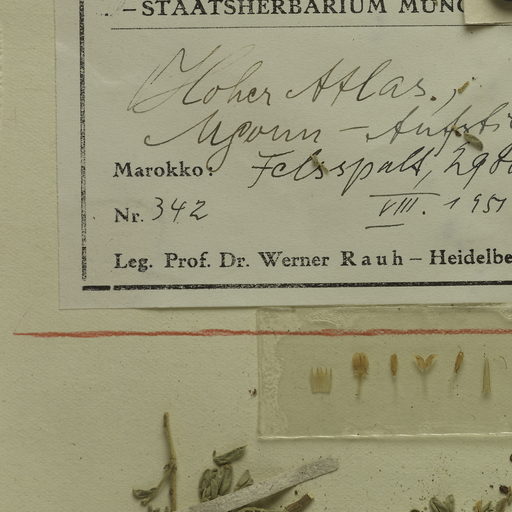 – STAATSHERBARIUM MÜNC
Hoher Atlas,
Mgoun – Aufsti
Marokko: Felsspalt, 2980
Nr. 342 VIII. 1951
Leg. Prof. Dr. Werner Rauh – Heidelbe